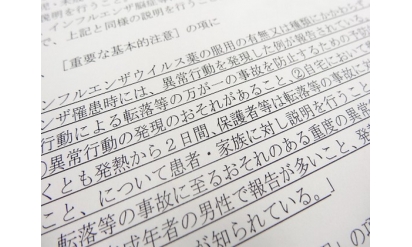 説明を行うこ
インフルエンザ脳症等
で、上記と同様の説明を行う
［重要な基本的注意］の項に
ンフルエンザウイルス薬の服用の有無又は種類にかかわらず
ンザ罹患時には、異常行動を発現した例が報告されている。
行動による転落等の万が一の事故を防止するための予防
異常行動の発現のおそれがあること、②自宅において
くとも発熱から２日間、保護者等は転落等の事故に対
こと、について患者・家族に対し説明を行うこと
転落等の事故に至るおそれのある重度の異常
成年者の男性で報告が多いこと、発
が知られている。」